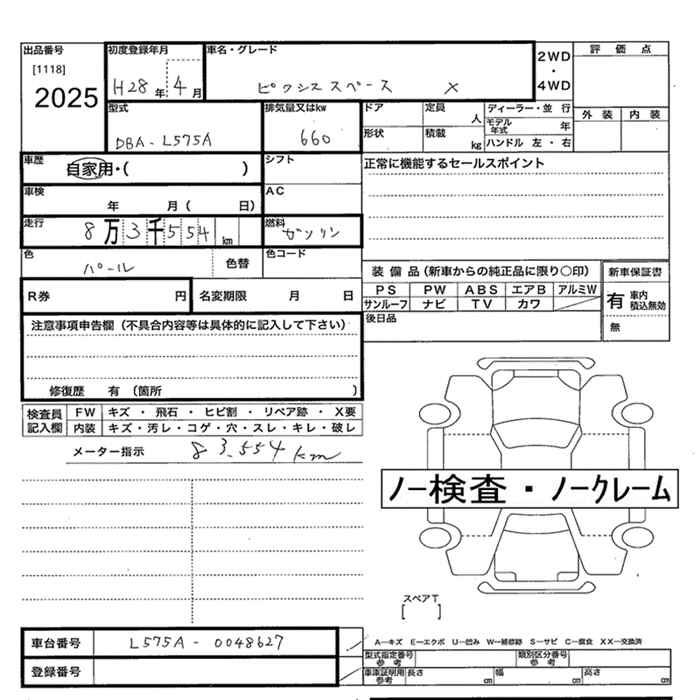 出品番号 初度登録年月 車名・グレード 2WD・4WD 評価点
[1118] 2025 H28年 4月 ピクシススペース X 外装 内装
型式 DBA-L575A 排気量又はkw 660 ドア 定員 人 ディーラー・並行
形状 積載 kg モデル年式 年 ハンドル 左・右
車歴 自家用・( ) シフト 正常に機能するセールスポイント
車検 年 月( 日) AC
走行 8万3千554km 燃料 ガソリン
色 パール 色替 色コード
装備品(新車からの純正品に限り○印) 新車保証書
R券 円 名変期限 月 日 PS PW ABS エアB アルミW 有 車内 積込無効
サンルーフ ナビ TV カワ 無
注意事項申告欄(不具合内容等は具体的に記入して下さい) 後日品
修復歴 有 (箇所 )
検査員記入欄 FW キズ・飛石・ヒビ割・リペア跡・X要
内装 キズ・汚レ・コゲ・穴・スレ・キレ・破レ
メーター指示 83,554km
ノー検査・ノークレーム
スペアT
[ ]
車台番号 L575A-0048627 A―キズ E―エクボ U―凹み W―補修跡 S―サビ C―腐食 XX―交換済
型式指定番号 参考 類別区分番号 参考
登録番号 車庫証明用 参考 長さ cm 幅 cm 高さ cm